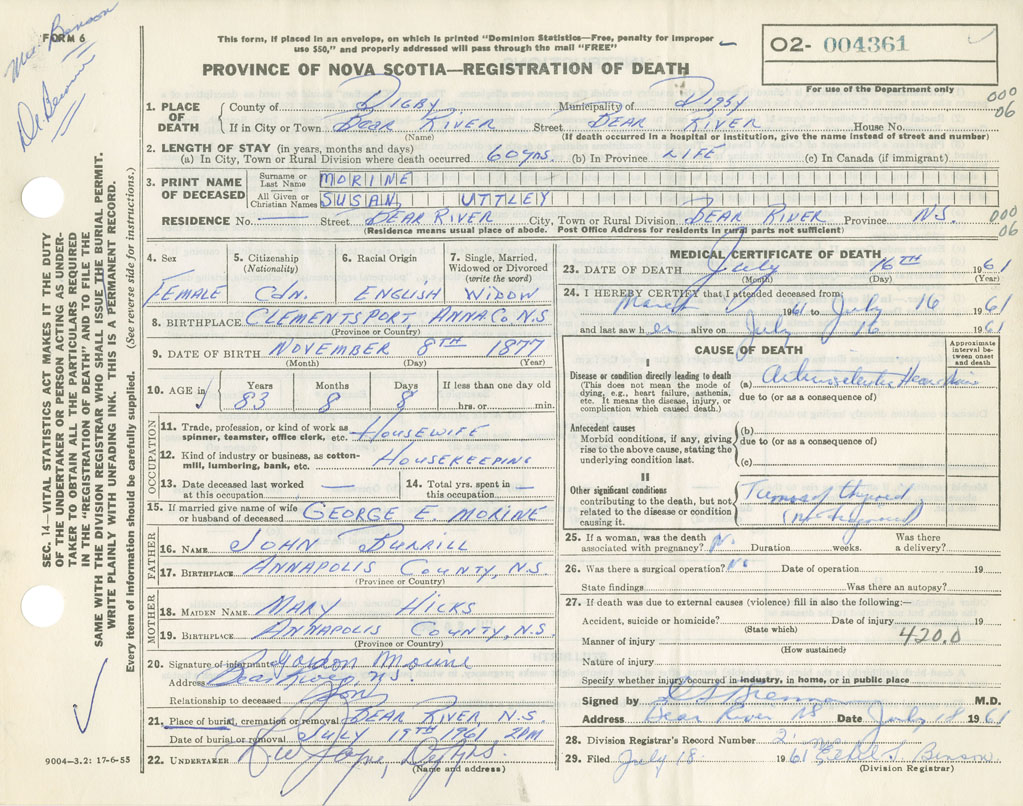 FORM 6
Mrs Benson
This form, if placed in an envelope, on which is printed "Dominion Statistics—Free, penalty for improper
use $50," and properly addressed will pass through the mail "FREE"
O2- 004361
PROVINCE OF NOVA SCOTIA—REGISTRATION OF DEATH
For use of the Department only
000
06
1. PLACE OF DEATH { County of DIGBY Municipality of DIGBY
If in City or Town BEAR RIVER Street BEAR RIVER House No.
(Name) (If death occurred in a hospital or institution, give the name instead of street and number)
2. LENGTH OF STAY (in years, months and days)
(a) In City, Town or Rural Division where death occurred 60 yrs. (b) In Province LIFE (c) In Canada (if immigrant)
3. PRINT NAME OF DECEASED Surname or Last Name MORINE
All Given or Christian Names SUSAN UTTLEY
RESIDENCE No. — Street BEAR RIVER City, Town or Rural Division BEAR RIVER Province N.S.
000
06
(Residence means usual place of abode. Post Office Address for residents in rural parts not sufficient)
4. Sex FEMALE
5. Citizenship (Nationality) CDN.
6. Racial Origin ENGLISH
7. Single, Married, Widowed or Divorced (write the word) WIDOW
8. BIRTHPLACE CLEMENTSPORT ANNA. CO. N.S.
(Province or Country)
9. DATE OF BIRTH NOVEMBER 8TH 1877
(Month) (Day) (Year)
10. AGE in Years 83 Months 8 Days 8 If less than one day old hrs. or min.
OCCUPATION
11. Trade, profession, or kind of work as
spinner, teamster, office clerk, etc. HOUSEWIFE
12. Kind of industry or business, as cotton-
mill, lumbering, bank, etc. HOUSEKEEPING
13. Date deceased last worked at this occupation — 14. Total yrs. spent in this occupation —
15. If married give name of wife
or husband of deceased GEORGE E. MORINE
FATHER
16. NAME JOHN BURRILL
17. BIRTHPLACE ANNAPOLIS COUNTY, N.S.
(Province or Country)
MOTHER
18. MAIDEN NAME MARY HICKS
19. BIRTHPLACE ANNAPOLIS COUNTY, N.S.
(Province or Country)
20. Signature of informant Gordon Morine
Address Bear River, N.S.
Relationship to deceased Son
21. Place of burial, cremation or removal BEAR RIVER, N.S.
Date of burial or removal JULY 19TH 1961 2PM
22. UNDERTAKER
(Name and address)
MEDICAL CERTIFICATE OF DEATH
23. DATE OF DEATH July 16TH 1961
(Month) (Day) (Year)
24. I HEREBY CERTIFY that I attended deceased from:
March 1961 to July 16 1961
and last saw her alive on July 16 1961
CAUSE OF DEATH
Approximate interval between onset and death
I
Disease or condition directly leading to death
(This does not mean the mode of
dying, e.g., heart failure, asthenia,
etc. It means the disease, injury, or
complication which caused death.)
(a) Arteriosclerotic Heart
due to (or as a consequence of)
Antecedent causes
Morbid conditions, if any, giving
rise to the above cause, stating the
underlying condition last.
(b)
due to (or as a consequence of)
(c)
II
Other significant conditions
contributing to the death, but not
related to the disease or condition
causing it.
Tumor of thyroid
25. If a woman, was the death Was there
associated with pregnancy? No Duration weeks. a delivery?
26. Was there a surgical operation? No Date of operation 19
State findings Was there an autopsy?
27. If death was due to external causes (violence) fill in also the following:—
Accident, suicide or homicide? Date of injury 19
(State which)
420.0
Manner of injury
(How sustained)
Nature of injury
Specify whether injury occurred in industry, in home, or in public place
Signed by M.D.
Address Bear River NS Date July 18 1961
28. Division Registrar's Record Number 2
29. Filed July 18 1961 Benson
(Division Registrar)
SEC. 14—VITAL STATISTICS ACT MAKES IT THE DUTY
OF THE UNDERTAKER OR PERSON ACTING AS UNDER-
TAKER TO OBTAIN ALL THE PARTICULARS REQUIRED
IN THE "REGISTRATION OF DEATH" AND TO FILE THE
SAME WITH THE DIVISION REGISTRAR WHO SHALL ISSUE THE BURIAL PERMIT.
WRITE PLAINLY WITH UNFADING INK. THIS IS A PERMANENT RECORD.
Every item of information should be carefully supplied. (See reverse side for instructions.)
9004—3.2: 17-6-55